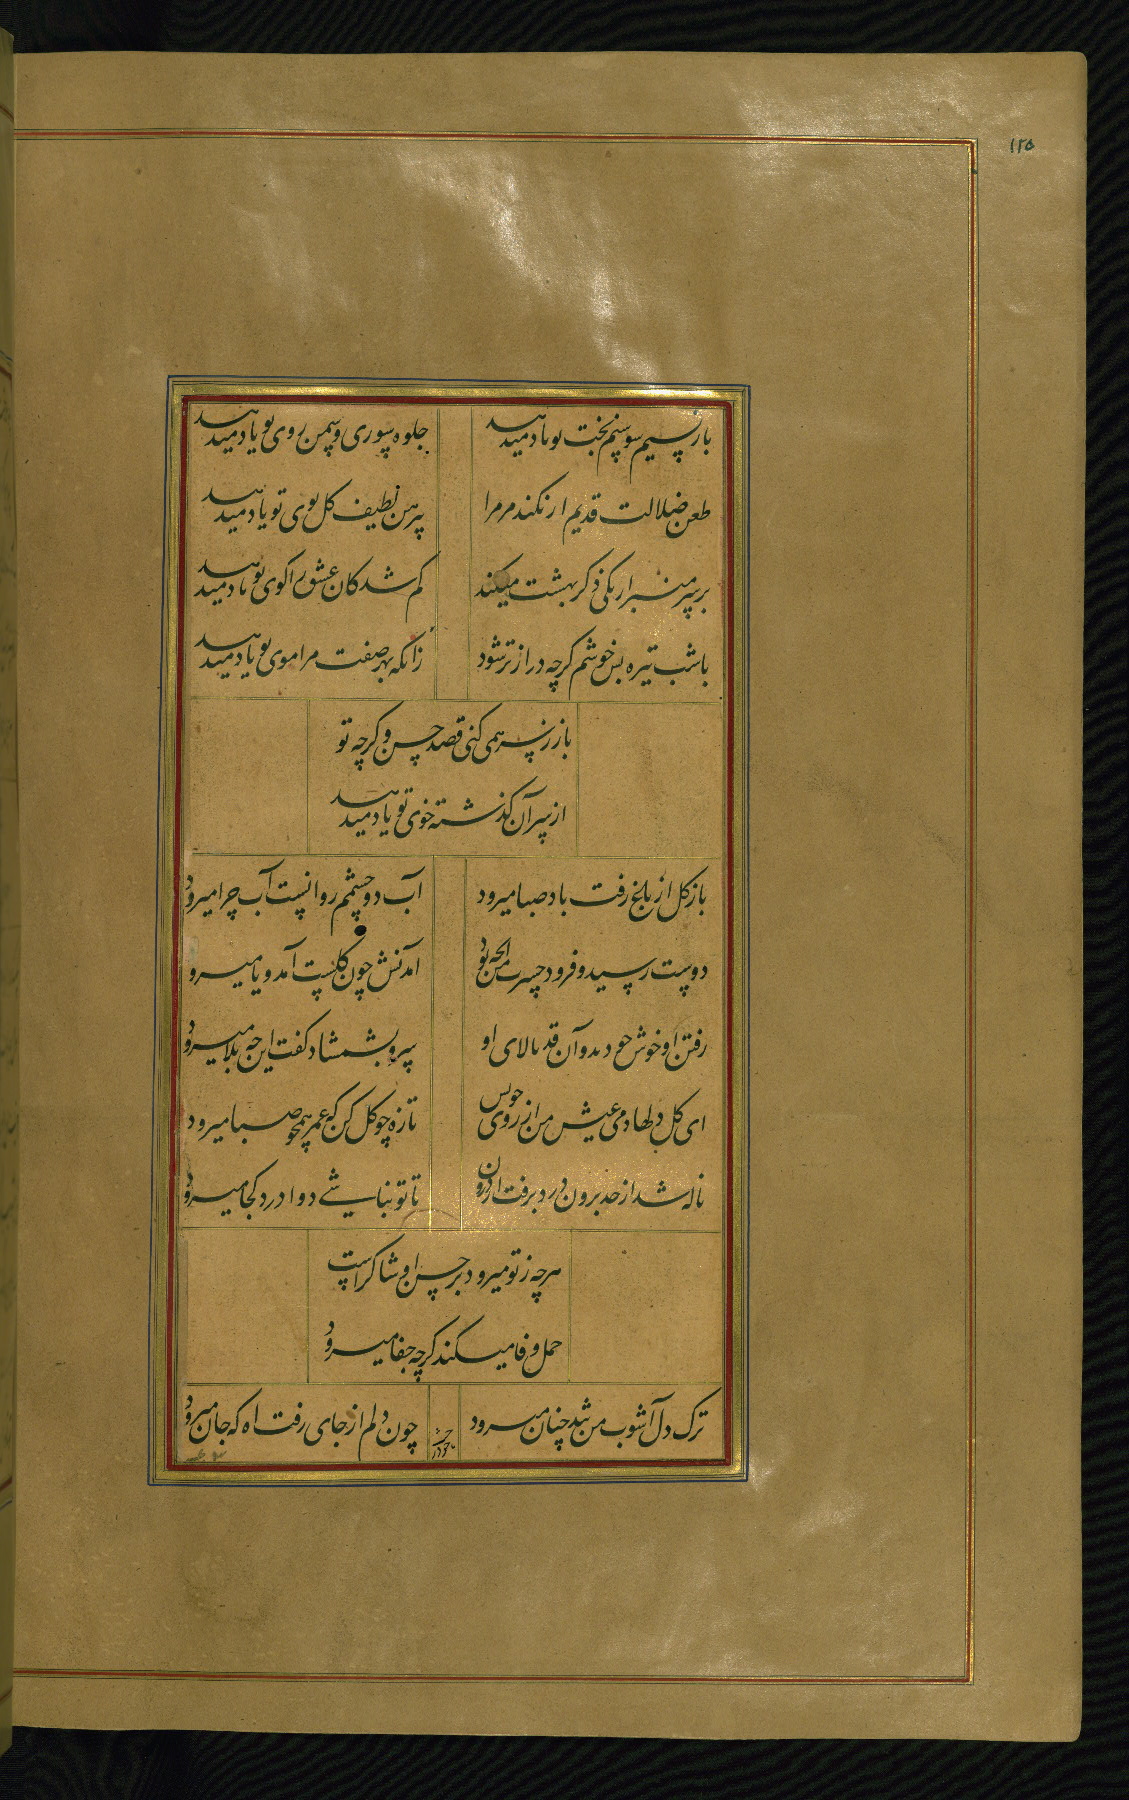 ۱۲۵
باز نسیم سوسنم نکهت تو یاد میدهد جلوه سوری و سمن روی تو یاد میدهد
طعن ضلالت قدیم ار نکند مر مرا پیرهن لطیف گل بوی تو یاد میدهد
بر سر منبر ار یکی ذکر بهشت میکند گم شدگان عشق را کوی تو یاد میدهد
با شب تیره بس خوشم گرچه دراز تر شود زانکه بهر صفت مرا موی تو یاد میدهد
باز ز سر همی کنی قصد حسن و گرچه تو
از سر آن گذشته خوی تو یاد میدهد
باز گل از باغ رفت باد صبا میرود آب دو چشمم روانست آب چرا میرود
دوست رسید و فرود حسرت من آنچه بود آمدنش چون گلست آمد و یا میرود
رفتن او خوش چو دید و آن قد بالای او سرو بشمشاد گفت این چه بلا میرود
ای گل دلها دمی عیش من از روی خویش تازه چو گل کن که عمر همچو صبا میرود
ناله شد از حد برون درد برفت از درون تا تو نباشی دوا درد کجا میرود
هرچه ز تو میرود بر حسن او شاکرست
حمل وفا میکند گرچه جفا میرود
ترک دل آشوب من شد چنان میرود چون دلم از جای رفت اه که جان میرود